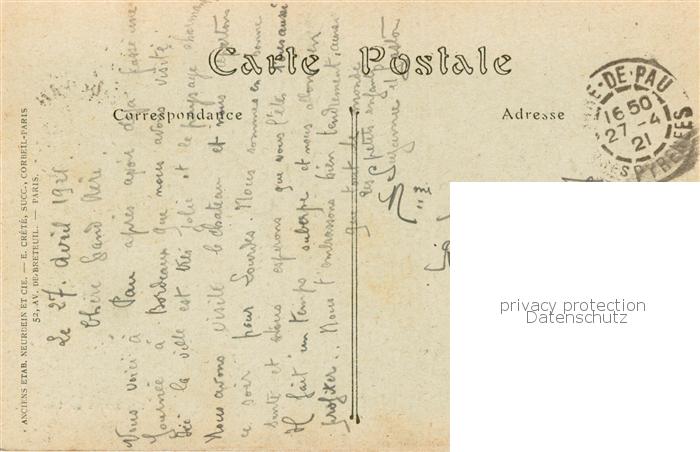 Carte Postale
Correspondance
Adresse
GARE-DE-PAU
16 50
27-4
21
PYRENEES
ANCIENS ETAB. NEURDEIN ET CIE. — E. CRÉTÉ, SUCC., CORBEIL-PARIS
52, AV. DE BRETEUIL. — PARIS.
Le 27 Avril 1921
Chère
Nous voici à Pau après avoir déjà passé une
journée à Bordeaux que nous avons visité
la ville est très jolie et le paysage charmant
Nous avons visité le château et nous partons
ce soir pour Lourdes. Nous sommes en bonne
santé et nous esperons que vous l'êtes aussi
Il fait un temps superbe et nous allons en
profiter. Nous t'embrassons bien tendrement ainsi
que tout le monde
les petits enfants
Suzanne et Gaston
Mme
privacy protection
Datenschutz